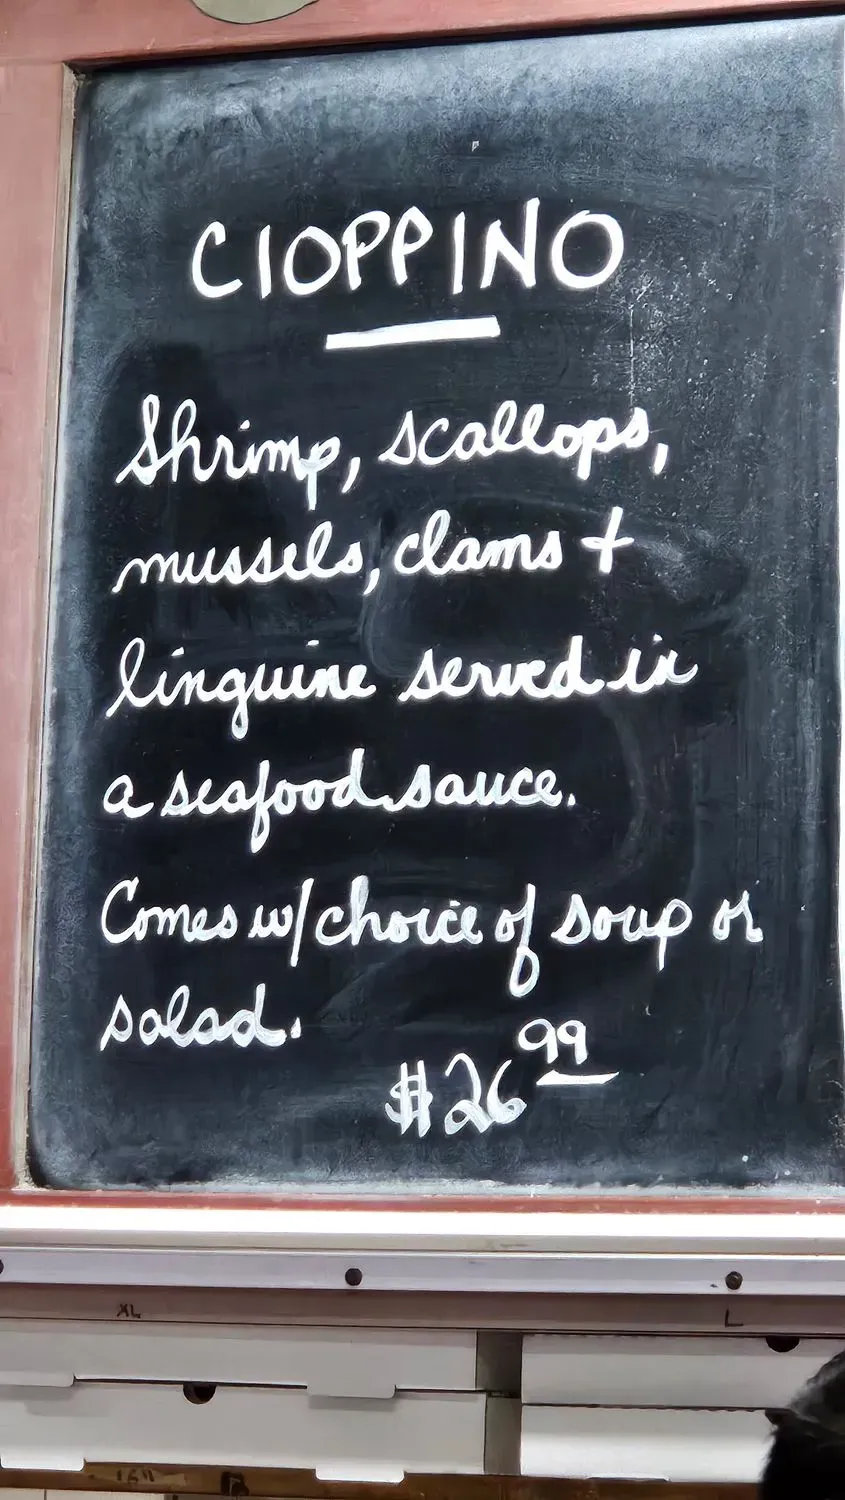 CIOPPINO
Shrimp, scallops,
mussels, clams +
linguine served in
a seafood sauce.
Comes w/ choice of soup or
salad.
$26 99
XL
L
16"